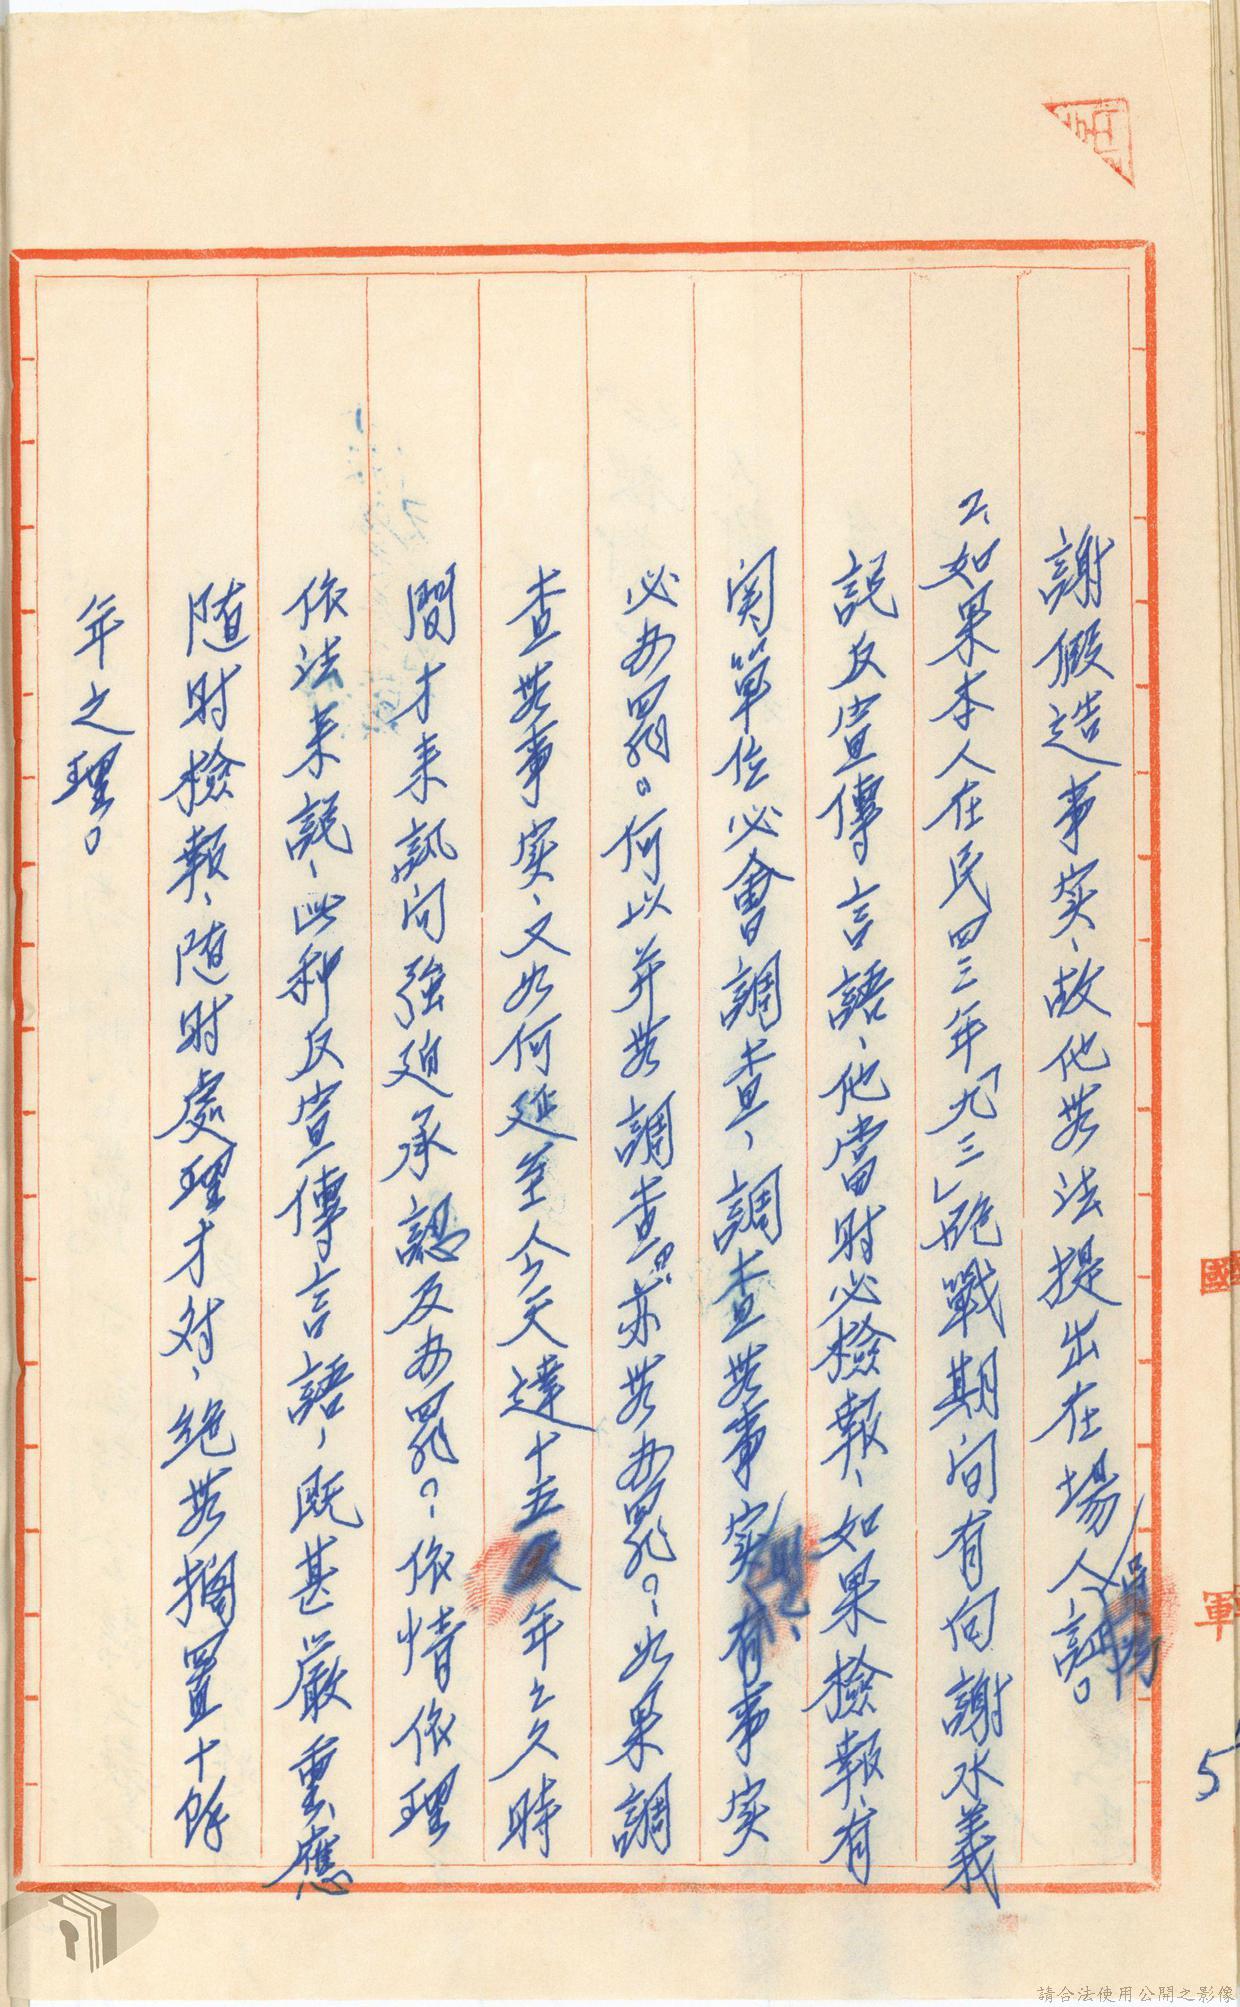 謝假造事実、故他無法提出在場人証。
2、如果本人在民四三年「九、三」砲戰期间有向謝水義
説反宣傳言語、他當時必檢報、如果檢報、有
関單位必會調查、調查無事実、有事実
必办罪。何以并無調查。亦無办罪？如果調
查無事実、又如何延至今天達十五年之久時
間才来訊问強廹承認及办罪？依情依理
依法来説、此种反宣傳言語、既甚嚴重、應
随時檢報、随時處理才对、絶無擱置十餘
年之理。
國
軍
5
請合法使用公開之影像